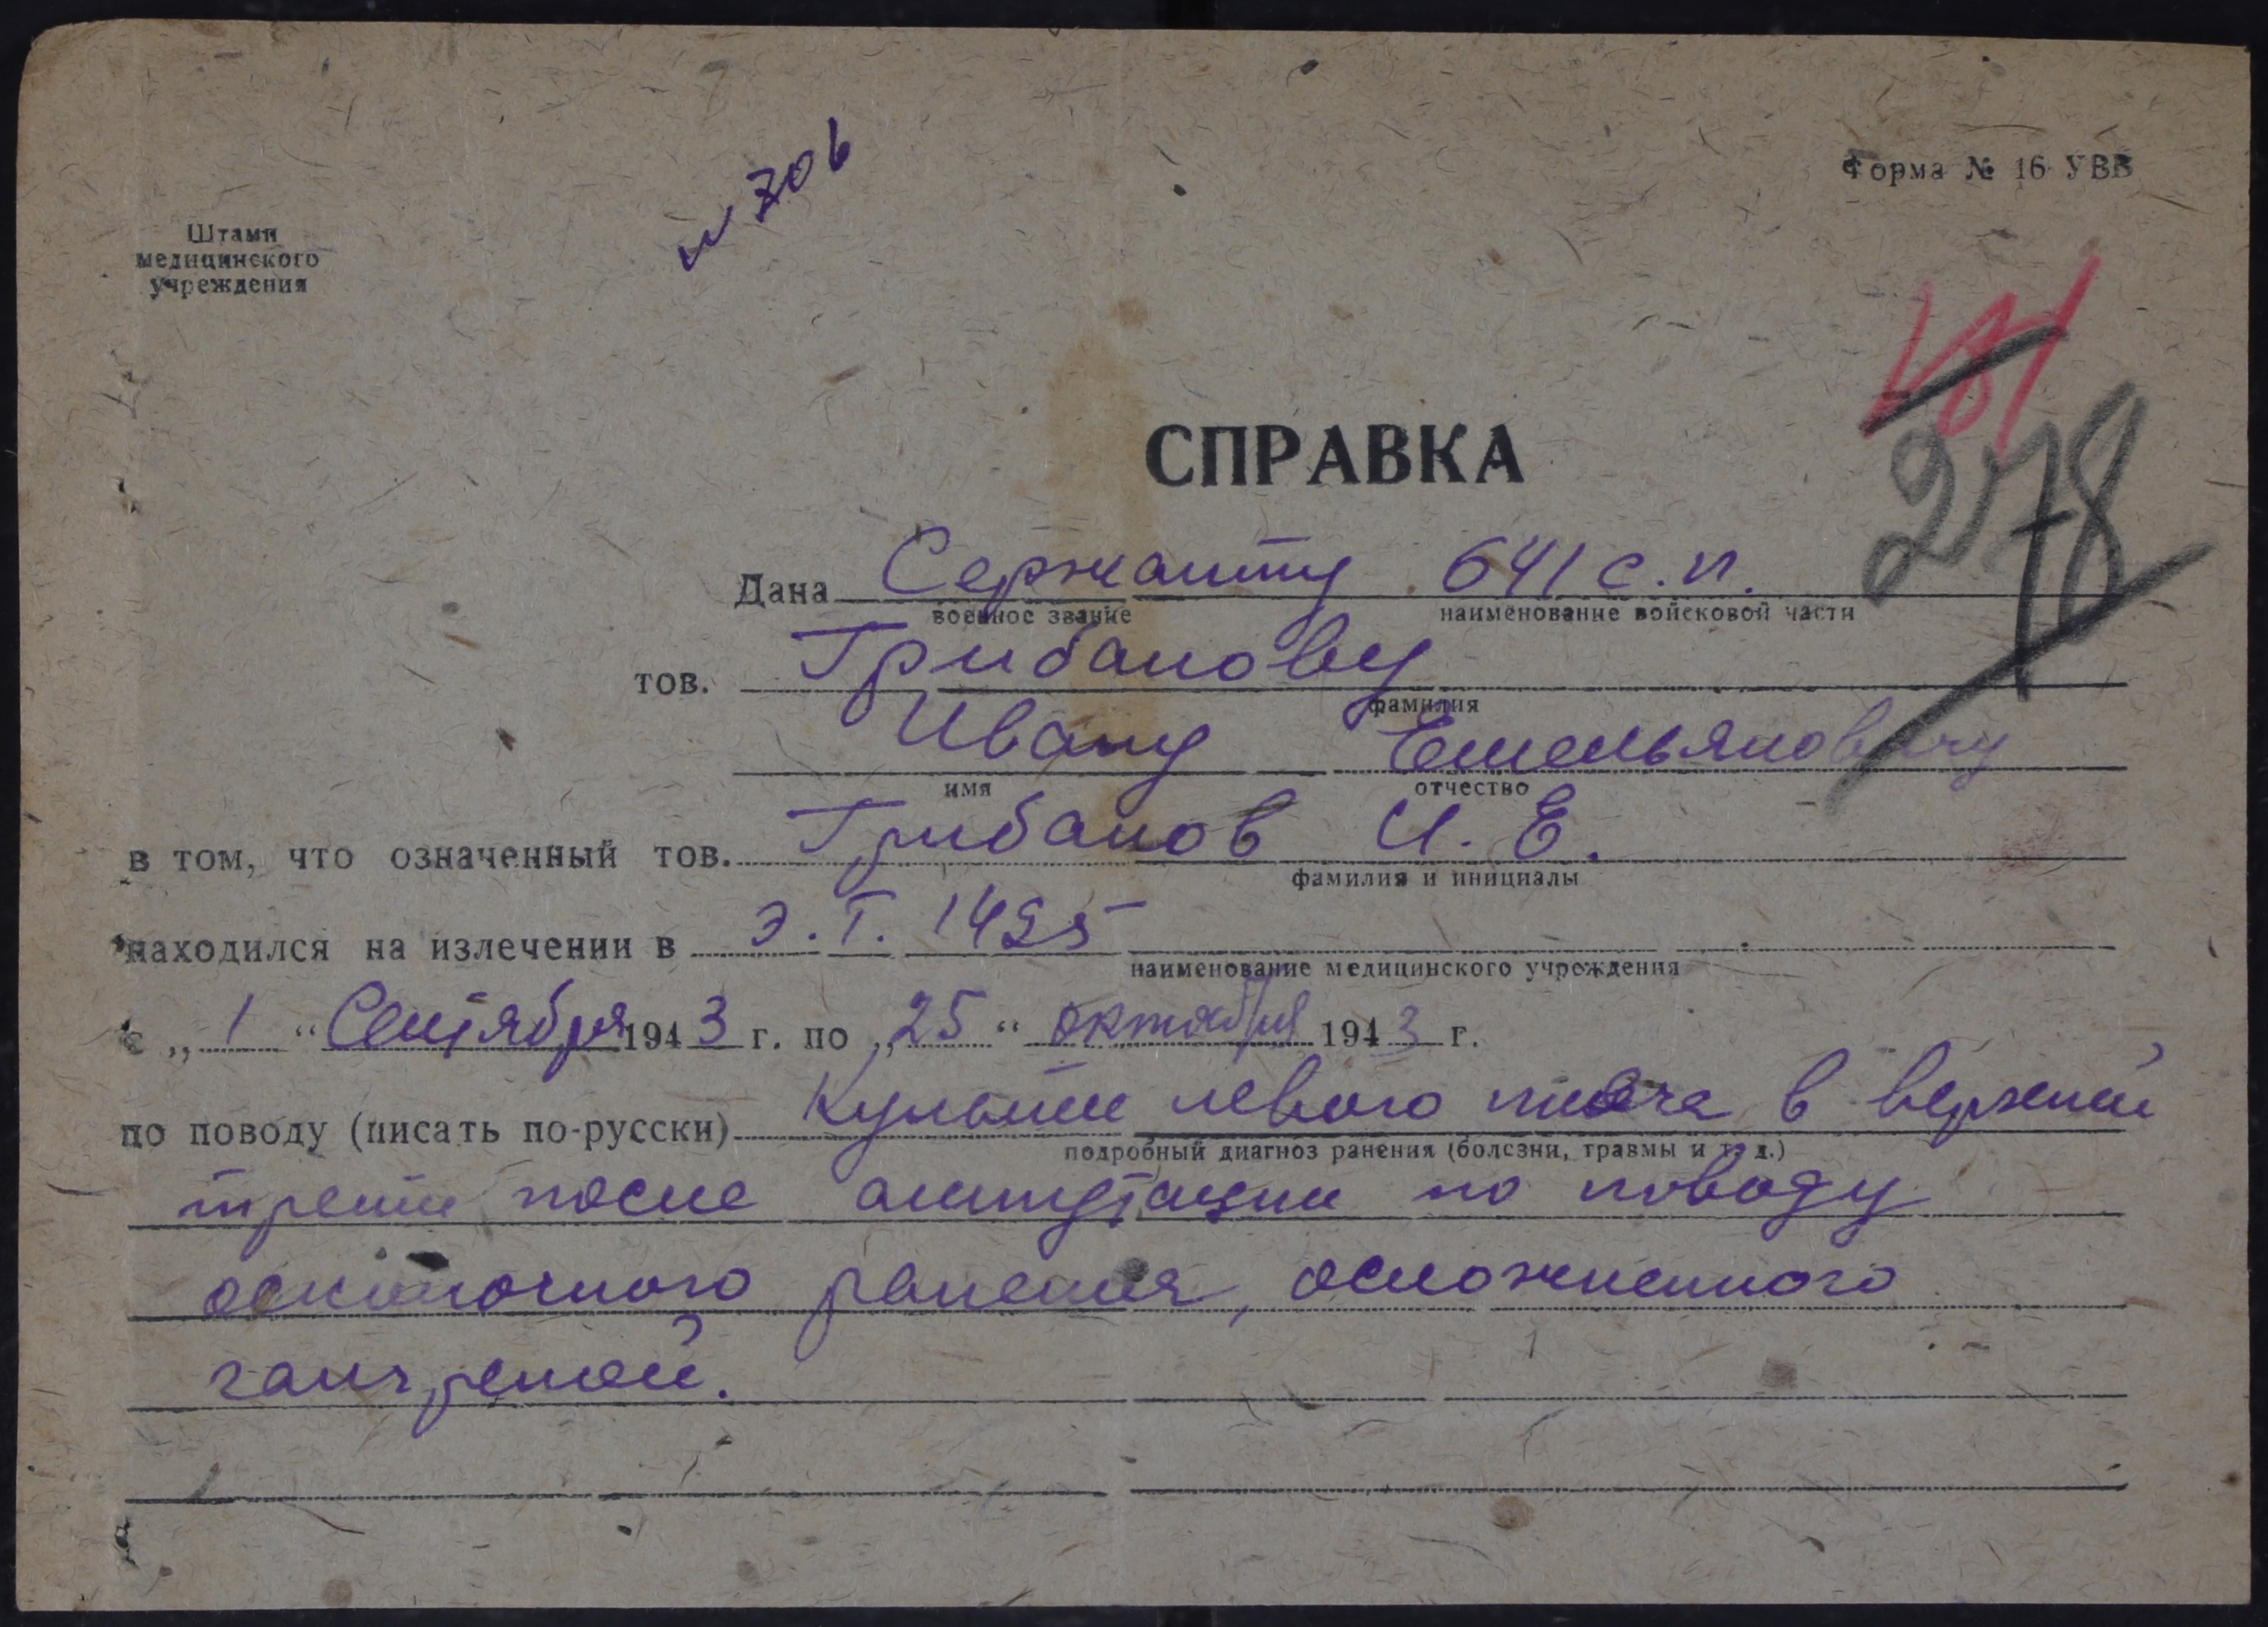 № 706
Форма № 16 УВВ
Штамп
медицинского
учреждения
181
278
СПРАВКА
Дана Сержанту 641 с.п.
военное звание наименование войсковой части
тов. Грибанову
фамилия
Ивану Емельяновичу
имя отчество
в том, что означенный тов. Грибанов И. Е.
фамилия и инициалы
находился на излечении в Э.Г. 1495
наименование медицинского учреждения
с „1“ Сентября 1943 г. по „25“ октября 1943 г.
по поводу (писать по-русски) Культи левого плеча в верхней
подробный диагноз ранения (болезни, травмы и т. д.)
трети после ампутации по поводу
осколочного ранения, осложненного
гангреной.